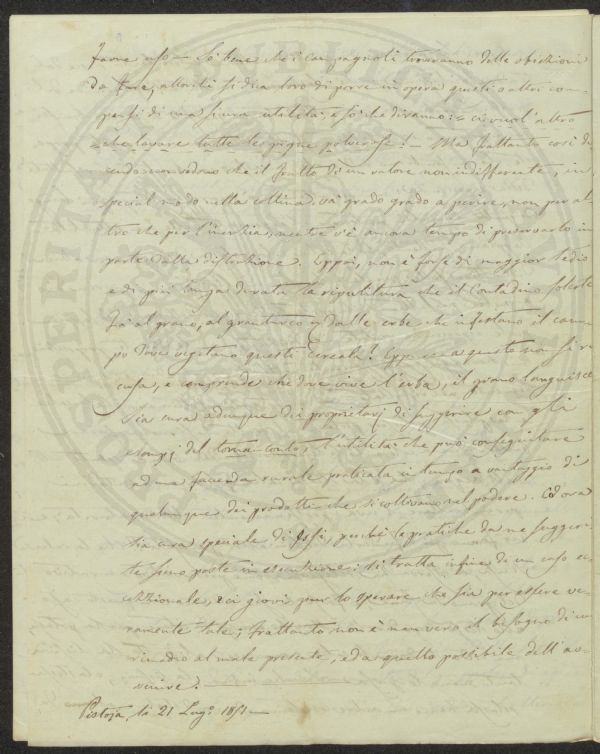 farne uso — So bene che i campagnoli troveranno delle obiezioni
da fare, allorchè si dica loro di porre in opera questi o altri com-
pensi di una sicura utilità; e so che diranno: = ci vuol'altro
= che lavare tutte le pigne polverose! — Ma frattanto così di
cendo non vedono che il frutto di un valore non indifferente, in
special modo nella collina, và grado grado a perire, non per al
tro che per l'inerzia, mentre v'è ancora tempo di preservarlo in
parte dalla distruzione. Eppoi, non è forse di maggior tedio
e di più lunga durata la ripulitura che il Contadino solerte
fà al grano, al granturco dalle erbe che infestano il cam-
po dove vegetano questi Cereali? Epp a questo non si ri
cusa, e comprende che dove vive l'erba, il grano languisce
Sia cura adunque dei proprietarj di suggerire con gli
esempj del torna-conto, l'utilità che può conseguitare
ad una faccenda rurale praticata in tempo a vantaggio di
qualunque dei prodotti che si coltivano nel podere. Ed ora
sia cura speciale di Essi, perchè le pratiche da me suggeri-
te sieno poste in esecuzione; si tratta infine di un caso ec
cezzionale, e ci giovi pur lo sperare che sia per essere ve-
ramente tale; frattanto non è men vero il bisogno di un
rimedio al male presente, ed a quello possibile dell'av-
venire?
Pistoja, li 21 Lug.º 1851 —